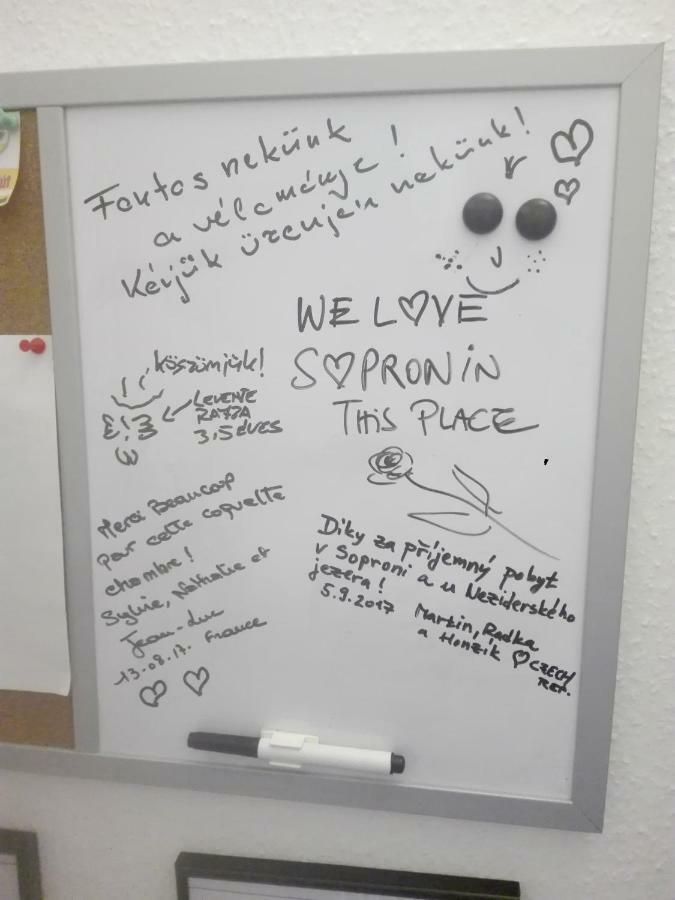 Fontos nekünk
a véleménye!
Kérjük üzenjen nekünk!
WE LOVE
SOPRON IN
THIS PLACE
köszönjük!
LEVENTE
RAJZA
3,5 ÉVES
Merci Beaucoup
pour cette coquette
chambre!
Sylvie, Nathalie et
Jean-Luc
13.08.17. France
Díky za příjemný pobyt
v Soproni a u Neziderského
jezera!
5.9.2017
Martin, Radka
a Honzík CZECH
REP.